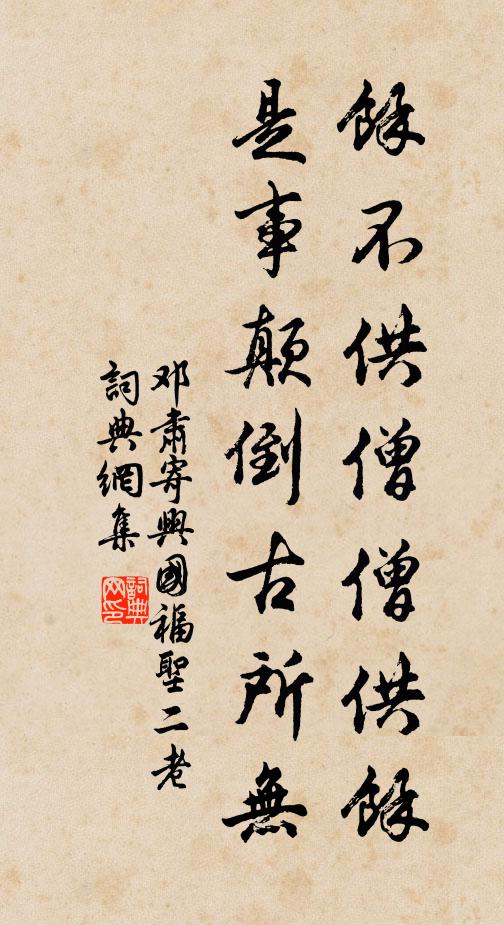 餘不供僧僧供餘
是事顛倒古所無
邓肅寄興國福聖二老
詞典網集
詞典
网印